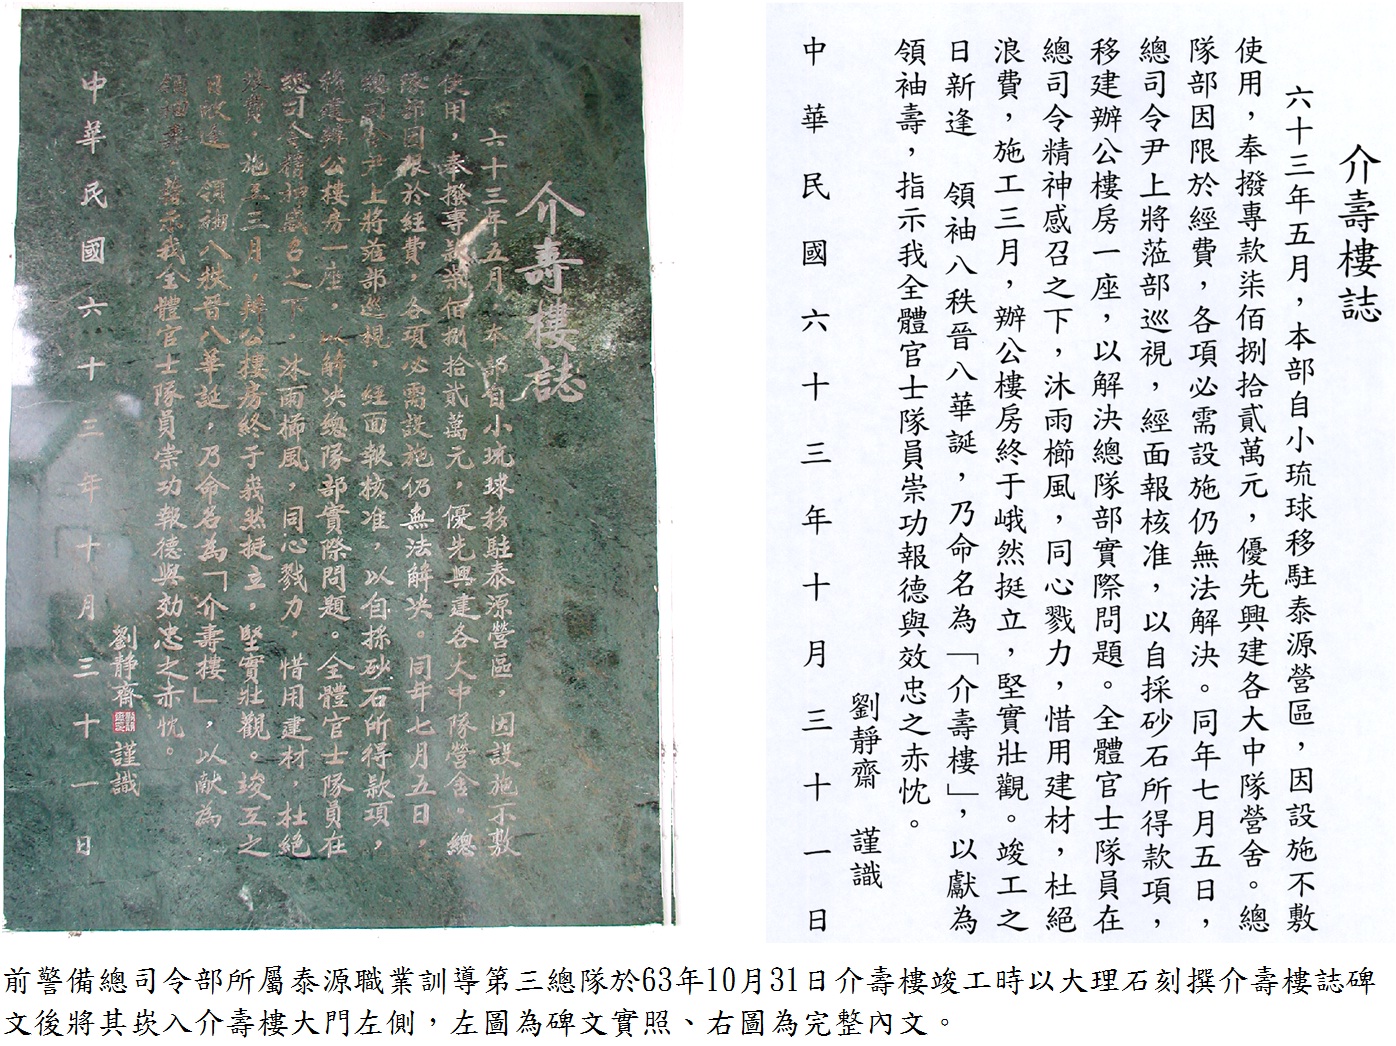 介壽樓誌
六十三年五月，本部自小琉球移駐泰源營區，因設施不敷
使用，奉撥專款柒佰捌拾貳萬元，優先興建各大中隊營舍。總
隊部因限於經費，各項必需設施仍無法解决。同年七月五日，
總司令尹上將蒞部巡視，經面報核准，以自採砂石所得款項，
移建辦公樓房一座，以解决總隊部實際問題。全體官士隊員在
總司令精神感召之下，沐雨櫛風，同心戮力，惜用建材，杜絕
浪費，施工三月，辦公樓房終于峩然挺立，堅實壯觀。竣工之
日欣逢　領袖八秩晉八華誕，乃命名為「介壽樓」，以献為
領袖壽，示我全體官士隊員崇功報德與効忠之赤忱。
劉靜齋　謹識
中華民國六十三年十月三十一日
介壽樓誌
六十三年五月，本部自小琉球移駐泰源營區，因設施不敷
使用，奉撥專款柒佰捌拾貳萬元，優先興建各大中隊營舍。總
隊部因限於經費，各項必需設施仍無法解決。同年七月五日，
總司令尹上將蒞部巡視，經面報核准，以自採砂石所得款項，
移建辦公樓房一座，以解決總隊部實際問題。全體官士隊員在
總司令精神感召之下，沐雨櫛風，同心戮力，惜用建材，杜絕
浪費，施工三月，辦公樓房終于峨然挺立，堅實壯觀。竣工之
日新逢　領袖八秩晉八華誕，乃命名為「介壽樓」，以獻為
領袖壽，指示我全體官士隊員崇功報德與效忠之赤忱。
劉靜齋　謹識
中華民國六十三年十月三十一日
前警備總司令部所屬泰源職業訓導第三總隊於63年10月31日介壽樓竣工時以大理石刻撰介壽樓誌碑
文後將其崁入介壽樓大門左側，左圖為碑文實照、右圖為完整內文。